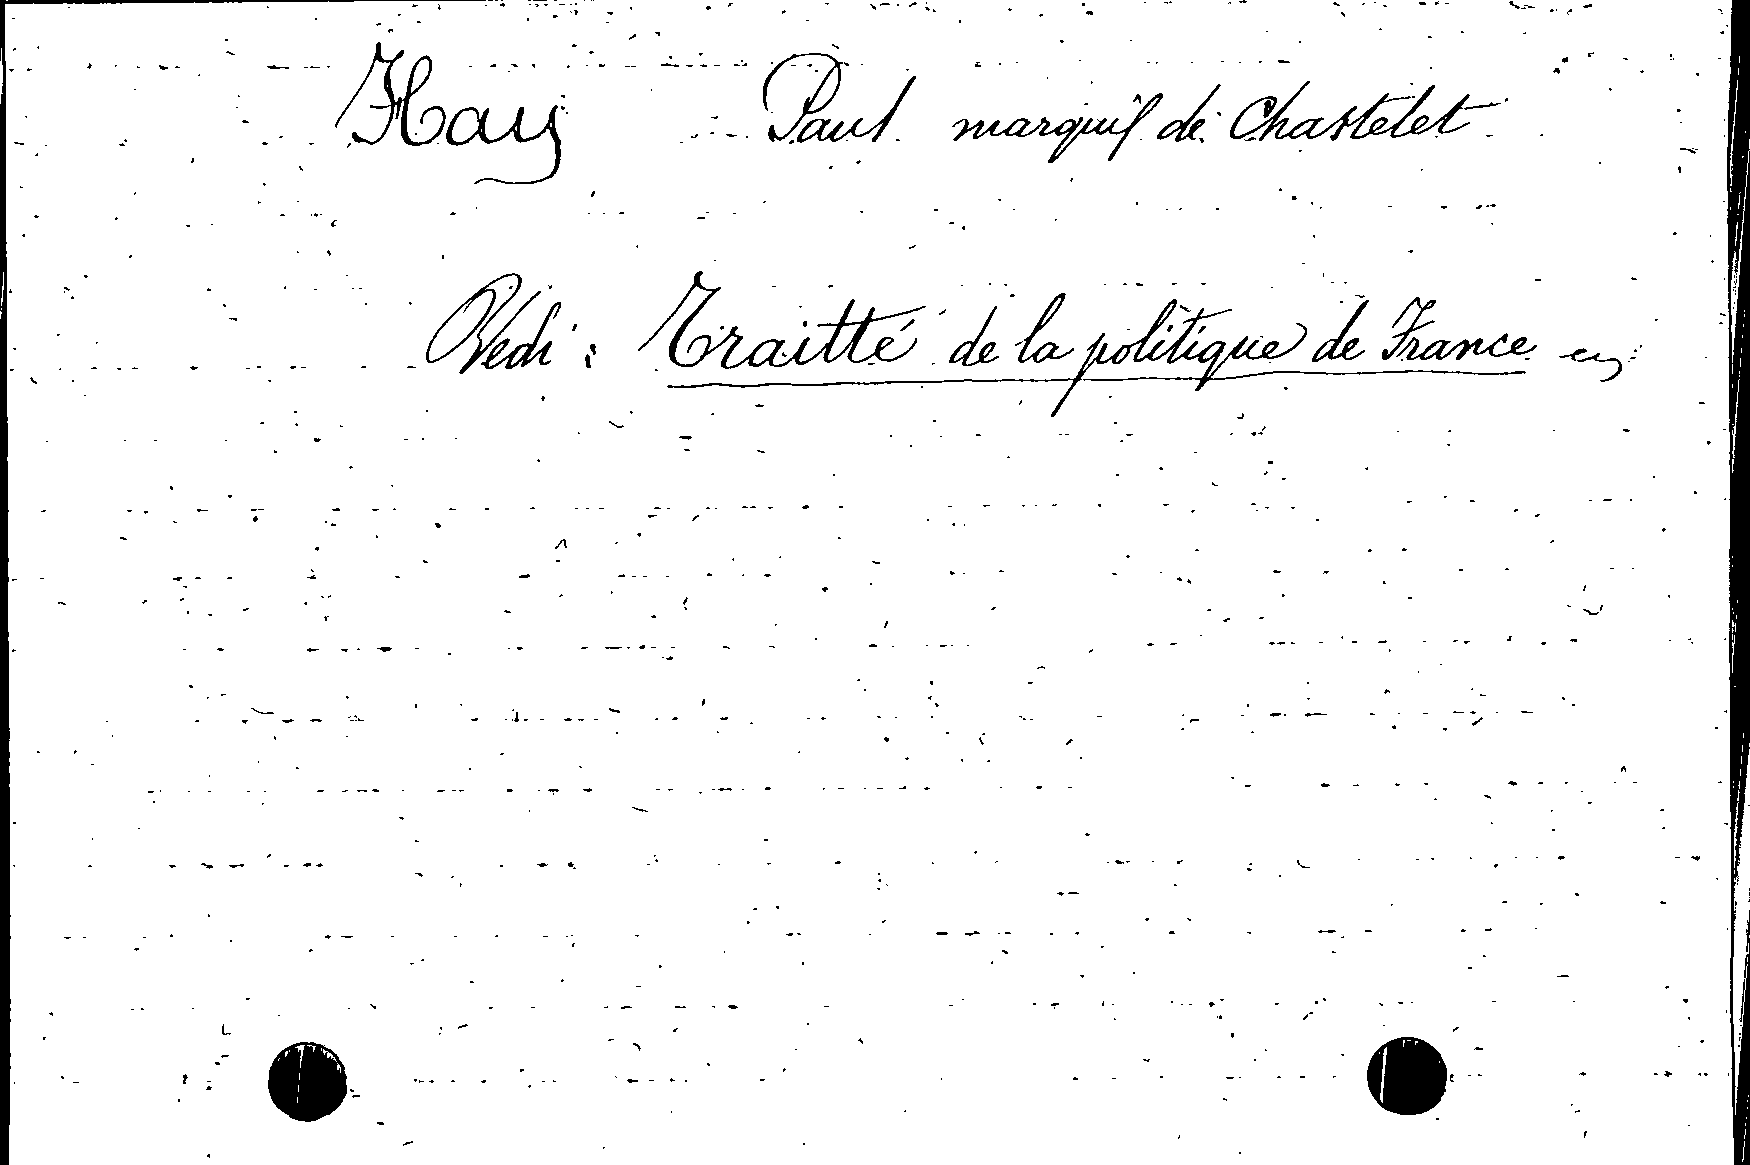 Hay Paul marquis de Chastelet
Vedi: Traitté de la politique de France